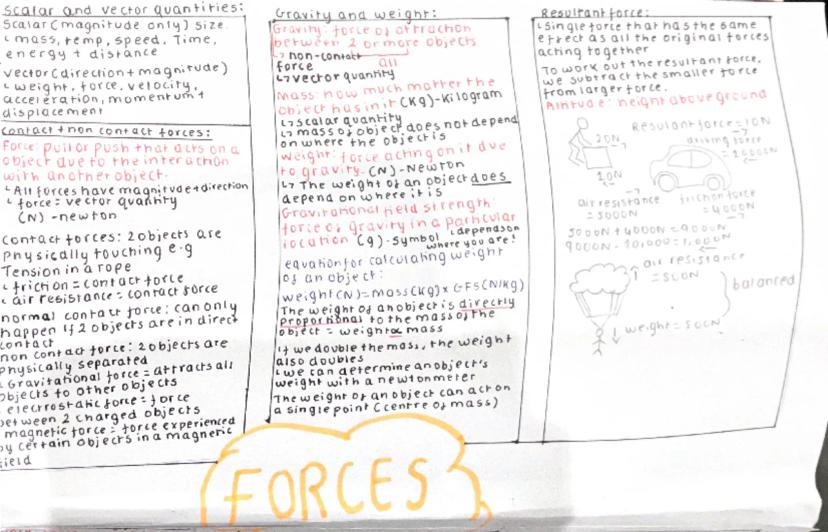 Scalar and vector quantities:
Scalar (magnitude only) size.
mass, temp, speed. Time,
energy + distance
vector (direction + magnitude)
weight, force, velocity,
acceleration, momentum +
displacement
Contact + non contact forces:
Force: pull or push that acts on a
object due to the interaction
with another object.
All forces have magnitude + direction
force = vector quantity
(N) - newton
Contact forces: 2 objects are
Physically touching e.g
Tension in a rope
friction = contact force
air resistance = contact force
normal contact force: can only
happen if 2 objects are in direct
contact
non contact force: 2 objects are
physically separated
Gravitational force = attracts all
objects to other objects
electrostatic force = force
between 2 charged objects
magnetic force = force experienced
by certain objects in a magnetic
field
Gravity and weight:
Gravity: force of attraction
between 2 or more objects
non-contact all
force
vector quantity
Mass: how much matter the
object has in it (Kg) - Kilogram
scalar quantity
mass of object does not depend
on where the object is
weight: force acting on it due
to gravity. (N) - Newton
The weight of an object does
depend on where it is
Gravitational field strength:
force of gravity in a particular
location (g) - symbol depends on
where you are!
equation for calculating weight
of an object:
weight (N) = Mass (Kg) x GFS (N/Kg)
The weight of an object is directly
proportional to the mass of the
object = weight ∝ mass
if we double the mass, the weight
also doubles
we can determine an object's
weight with a newtonmeter
The weight of an object can act on
a single point (centre of mass)
Resultant force:
Single force that has the same
effect as all the original forces
acting together
To work out the resultant force,
we subtract the smaller force
from larger force.
Altitude: height above ground
Resultant force = 10N
20N
10N
driving force
= 10000N
air resistance
= 5000N
friction force
= 4000N
5000N + 4000N = 9000N
9000N - 10,000 = 1,000N
air resistance
= 500N
balanced
weight = 500N
FORCES